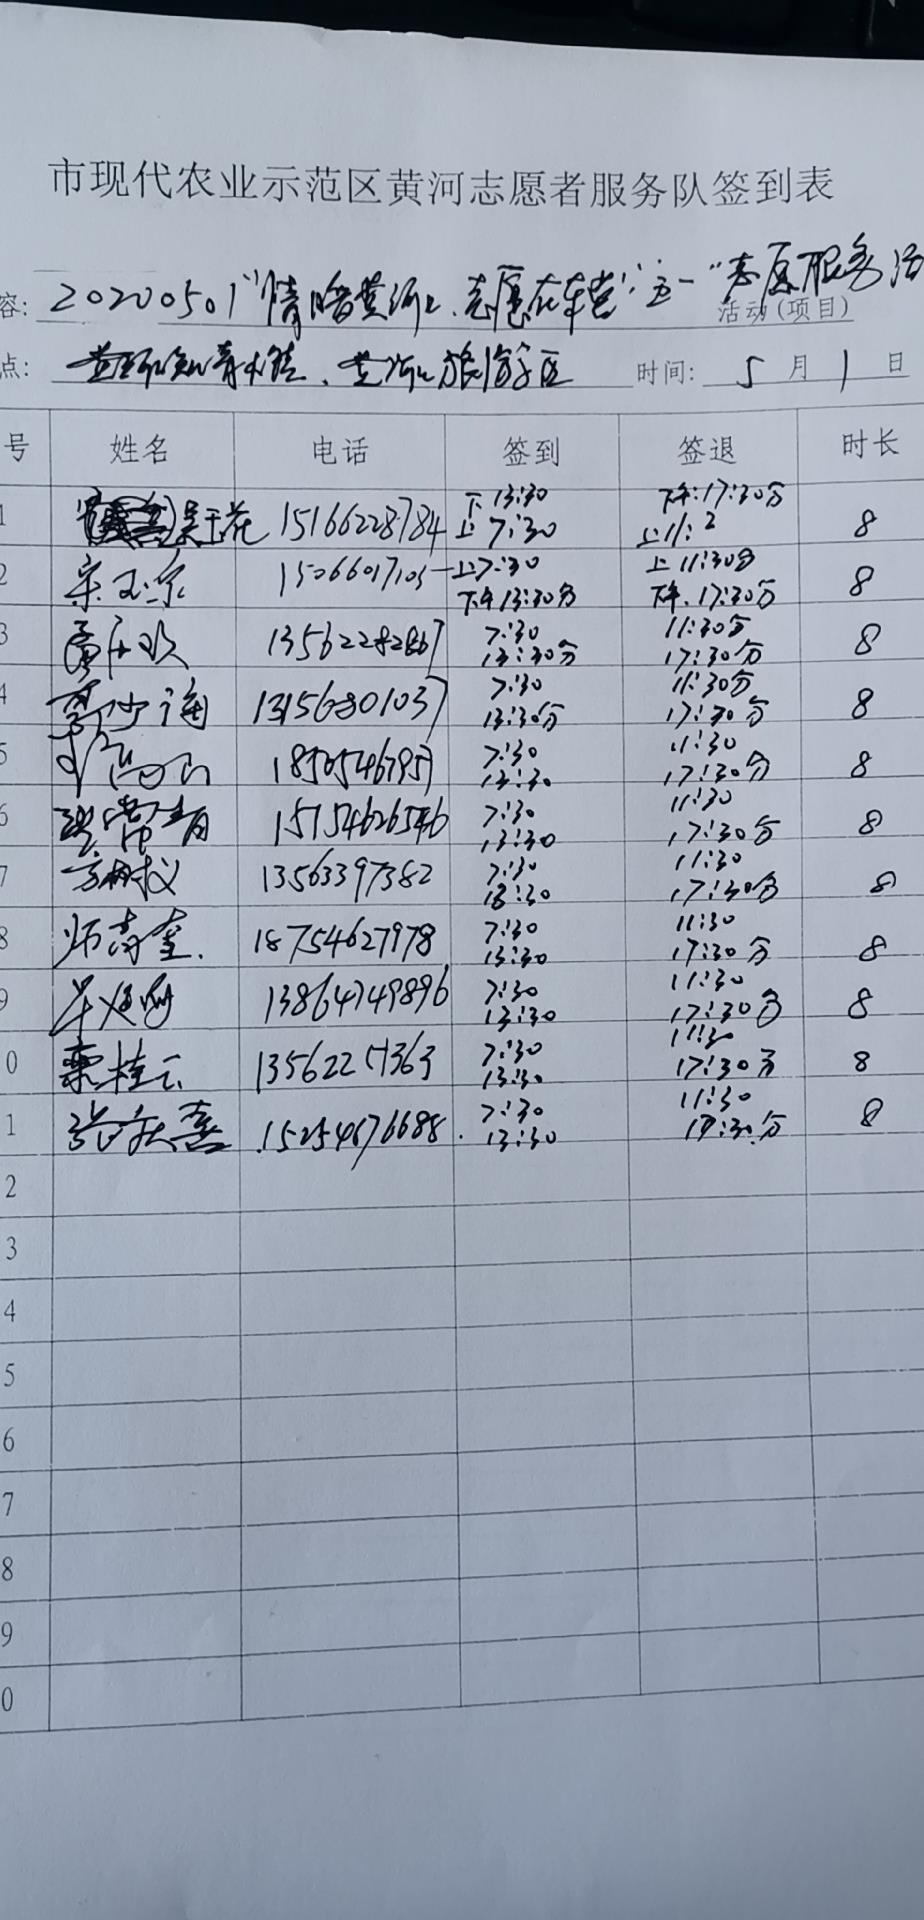 市现代农业示范区黄河志愿者服务队签到表
容: 20200501"情暖黄河、志愿在东营"五一"志愿服务活
活动(项目)
点: 黄河旅游区 时间: 5月1日
号 姓名 电话 签到 签退 时长
1 吴玉花 15166228784 下13:30 上7:30 下午:17:30分 上11: 8
2 宋玉 上7:30 下午13:30分 上11:30分 下午.17:30分 8
3 7:30 13:30分 11:30分 17:30分 8
4 13156801037 7:30 13:30分 11:30分 17:30分 8
5 7:30 13:30 11:30 17:30分 8
6 常青 15154626546 7:30 13:30 11:30 17:30分 8
7 方树义 13563397382 7:30 13:30 11:30 17:30分 8
8 师高奎. 18754627978 7:30 13:30 11:30 17:30分 8
9 13864749896 7:30 13:30 11:30 17:30分 8
0 栗桂云 7:30 13:30 11:30 17:30分 8
1 张庆喜 15254676688 7:30 13:30 11:30 17:30分 8
2
3
4
5
6
7
8
9
0